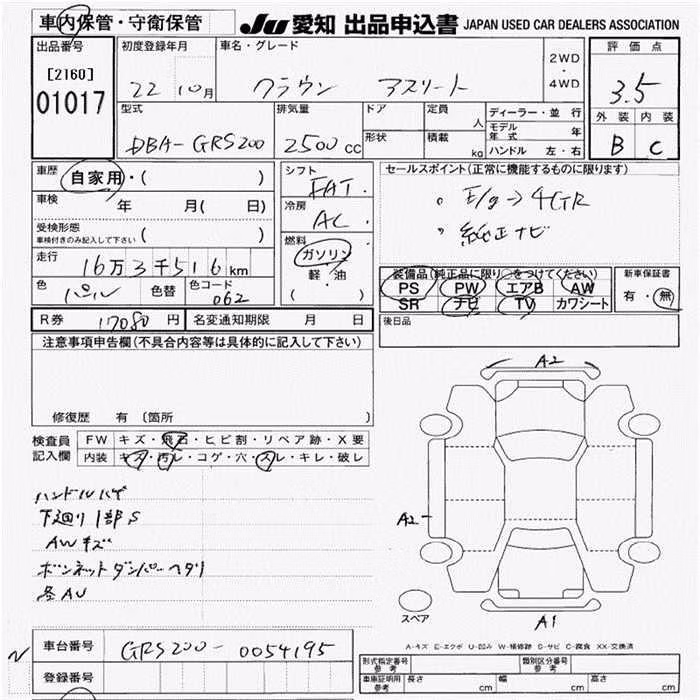 車内保管・守衛保管
JU 愛知 出品申込書 JAPAN USED CAR DEALERS ASSOCIATION
出品番号
[2160]
01017
初度登録年月
22 10月
車名・グレード
クラウン アスリート
2WD
・
4WD
評価点
3.5
外装 内装
B C
型式
DBA-GRS200
排気量
2500 cc
ドア
形状
定員 人
積載 kg
ディーラー・並行
モデル年式 年
ハンドル 左・右
車歴 自家用・( )
車検 年 月( 日)
受検形態
車検付きのみ記入して下さい ( )
走行 16万3千516km
色 パール 色替 色コード 062
シフト
FAT
冷房
AC
燃料
ガソリン
軽・油
( )
セールスポイント(正常に機能するものに限ります)
E/g→4GR
純正ナビ
装備品(純正品に限り○をつけてください)
PS PW エアB AW
SR ナビ TV カワシート
新車保証書
有・無
R券 17080円 名変通知期限 月 日
後日品
注意事項申告欄(不具合内容等は具体的に記入して下さい)
修復歴 有 〔箇所 〕
検査員記入欄
FW キズ・飛石・ヒビ割・リペア跡・X要
内装 キズ・汚レ・コゲ・穴・スレ・キレ・破レ
ハンドルハゲ
下廻り1部S
AWキズ
ボンネットダンパーヘタリ
A2
A2
A1
スペア
A-キズ E-エクボ U-凹み W-補修跡 S-サビ C-腐食 XX-交換済
車台番号 GRS200-0054195
登録番号
形式指定番号 参考
類別区分番号 参考
車庫証明用 参考 長さ cm 幅 cm 高さ cm